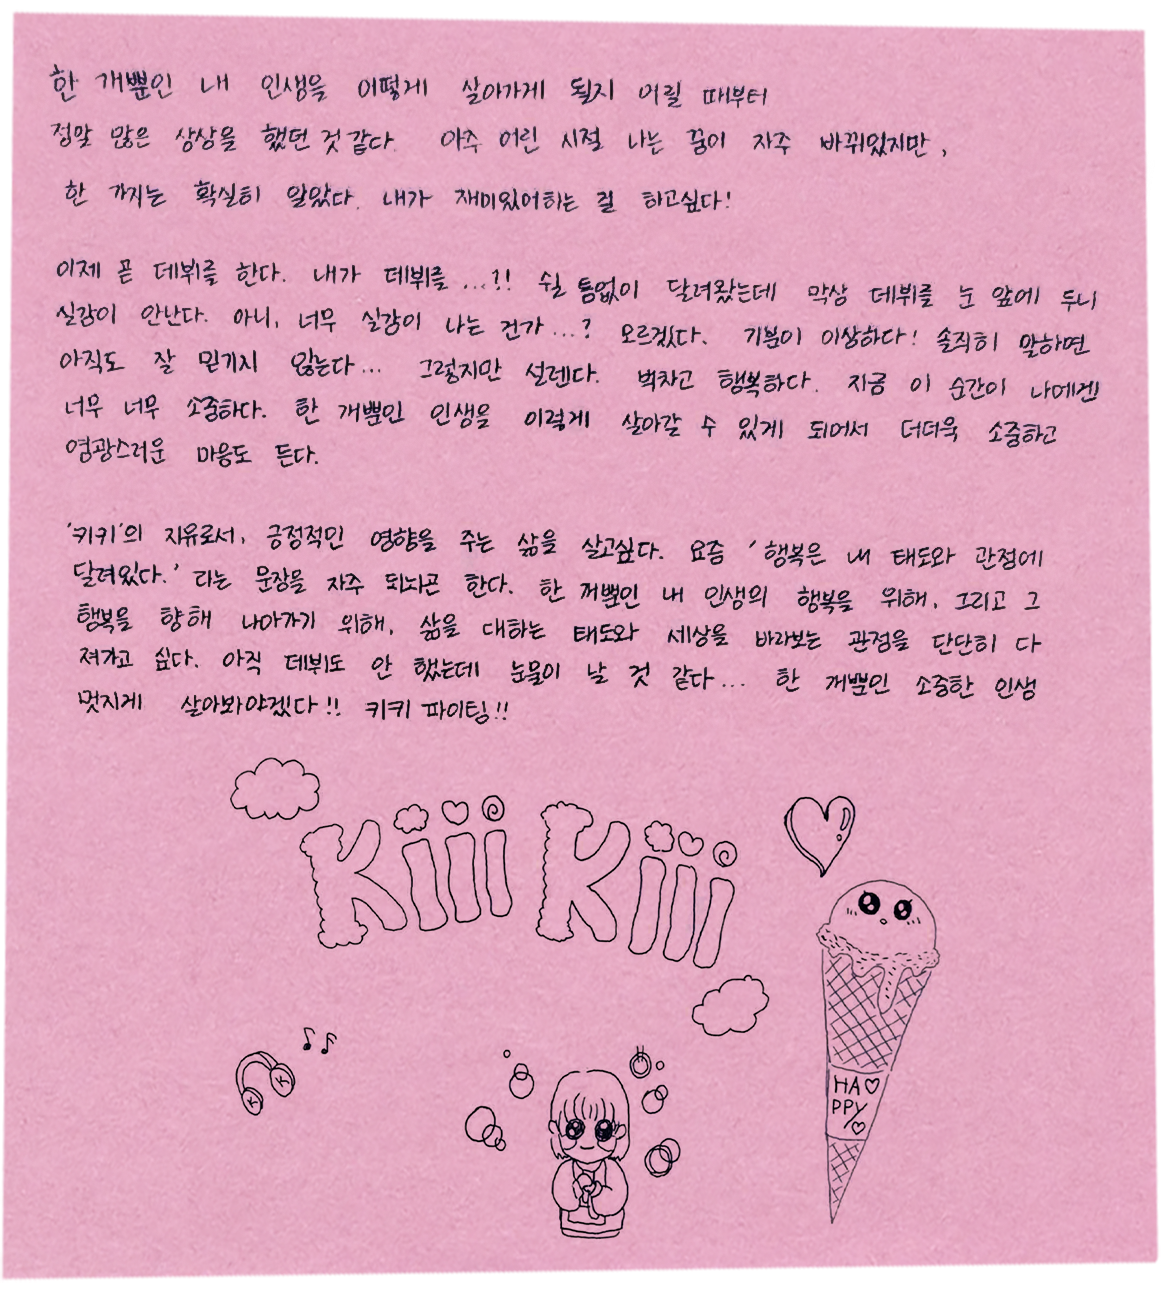 한 개뿐인 내 인생을 어떻게 살아가게 될지 어릴 때부터
정말 많은 상상을 했던 것 같다. 아주 어린 시절 나는 꿈이 자주 바뀌었지만,
한 가지는 확실히 알았다. 내가 재미있어하는 걸 하고싶다!
이제 곧 데뷔를 한다. 내가 데뷔를...?! 쉴 틈없이 달려왔는데 막상 데뷔를 눈 앞에 두니
실감이 안난다. 아니, 너무 실감이 나는 건가...? 모르겠다. 기분이 이상하다! 솔직히 말하면
아직도 잘 믿기지 않는다... 그렇지만 설렌다. 벅차고 행복하다. 지금 이 순간이 나에겐
너무 너무 소중하다. 한 개뿐인 인생을 이렇게 살아갈 수 있게 되어서 더더욱 소중하고
영광스러운 마음도 든다.
'키키'의 지유로서, 긍정적인 영향을 주는 삶을 살고싶다. 요즘 '행복은 내 태도와 관점에
달려있다.' 라는 문장을 자주 되뇌곤 한다. 한 개뿐인 내 인생의 행복을 위해, 그리고 그
행복을 향해 나아가기 위해, 삶을 대하는 태도와 세상을 바라보는 관점을 단단히 다
져가고 싶다. 아직 데뷔도 안 했는데 눈물이 날 것 같다... 한 개뿐인 소중한 인생
멋지게 살아봐야겠다!! 키키 파이팅!!
Kiii Kiii
HA♡
PPY
K K